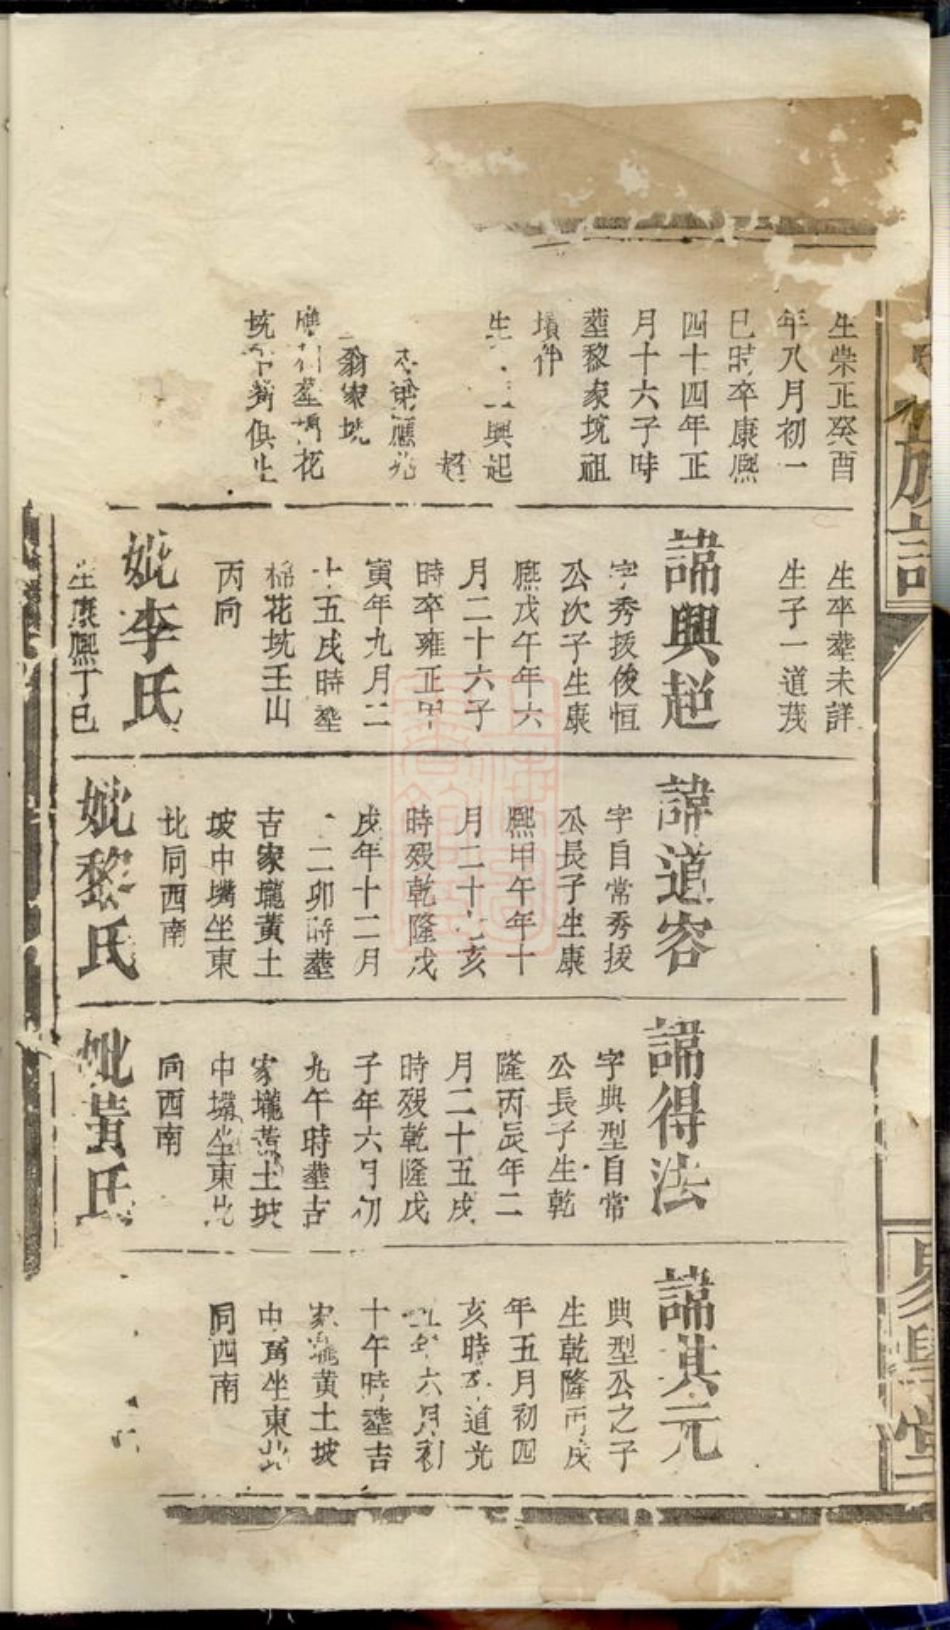 族譜
堂
生崇正癸酉
年八月初一
巳時卒康熙
四十四年正
月十六子時
塟黎家坑祖
墳
生興起
超
應
翁家坑
塟 花
坑 俱
生卒塟未詳
生子一道茂
諱興超
字秀拔俊恒
公次子生康
熙戊午年六
月二十六子
時卒雍正甲
寅年九月二
十五戌時塟
棉花坑壬山
丙向
妣李氏
生康熙丁巳
諱道容
字自常秀拔
公長子生康
熙甲午年十
月二十七亥
時歿乾隆戊
戌年十二月
十二卯時塟
吉家壠黃土
坡中嘴坐東
北向西南
妣黎氏
諱得法
字典型自常
公長子生乾
隆丙辰年二
月二十五戌
時歿乾隆戊
子年六月初
九午時塟吉
家壠黃土坡
中 坐東北
向西南
妣黃氏
諱其元
典型公之子
生乾隆丙戌
年五月初四
亥時 道光
年六月初
十午時塟吉
家壠黃土坡
中 坐東北
向西南